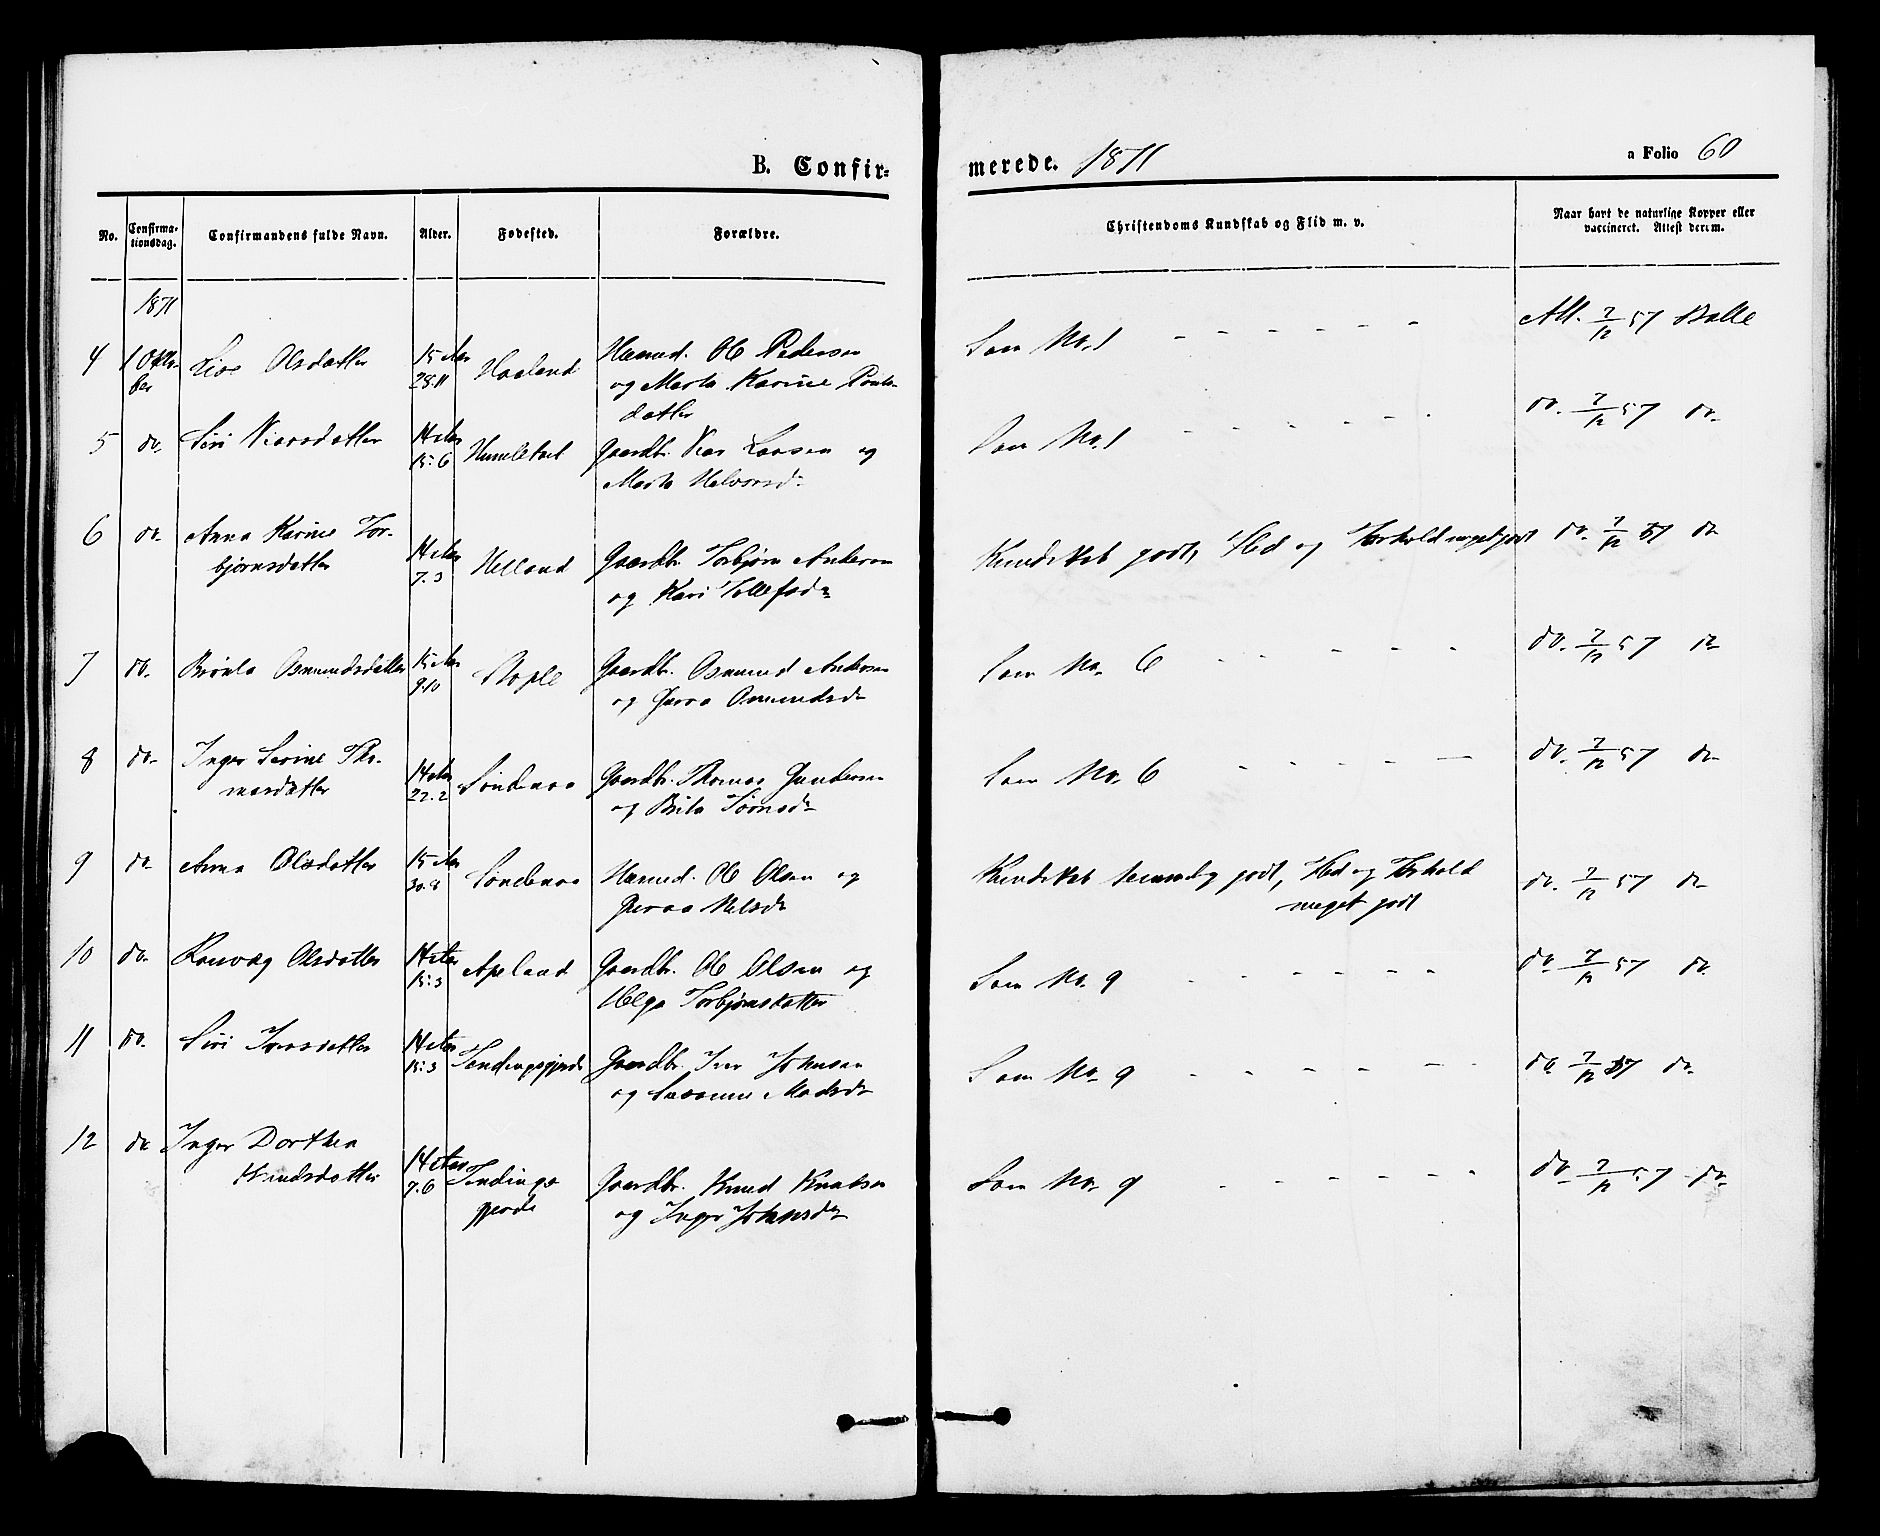 B. Confir-
merede. 1871
a Folio 60
No. Confirma-tionsdag. Confirmandens fulde Navn. Alder. Fødested. Forældre. Christendoms Kundskab og Flid m. v. Naar havt de naturlige Kopper eller vaccineret. Attest derom.
1871
4 1 Octo-ber Olsdatter 15 Aar 28.11 Haaland Huusmd. Ol Pedersen
og Marta Karine
datter
Som No. 1 - - - - - - Att. 7/12 57 Balle
5 do. Siri 14 Aar 15.6 Gaardbr. og
Marta Halvorsd.
Som No. 1 - - - - - - do. 7/12 57 do.
6 do. Anna Karine Tor-
bjørnsdatter
14 Aar 7.3 Helland Gaardbr. Torbjørn Andersen
og Kari Tollefsd.
Kundskab godt, Flid og Forhold meget godt do. 7/12 57 do.
7 do. Osmundsdatter 15 Aar 9.10 Stople Gaardbr. Osmund Andersen
og Osmundsd.
Som No. 6 - - - - - do. 7/12 57 do.
8 do. Inger Serine Tho-
masdatter
14 Aar 22.2 Søndenaa Gaardbr. Thomas Gundersen
og Brita
Som No. 6 - - - - - do. 7/12 57 do.
9 do. Anna Olsdatter 15 Aar 30.8 Søndenaa Huusmd. Ol Olsen og
Nelsd.
Kundskab temmelig godt, Flid og Forhold
meget godt
do. 7/12 57 do.
10 do. Ransvæg Olsdatter 14 Aar 15.3 Apeland Gaardbr. Ol Olsen og
Helga Torbjørnsdatter
Som No. 9 - - - - - - do. 7/12 57 do.
11 do. Siri Iversdatter 14 Aar 15.3 Gaardbr. Iver Johnsen
og Susanne Madsd.
Som No. 9 - - - - - - do. 7/12 57 do.
12 do. Inger Dorthea
Knudsdatter
14 Aar 7.6 Tendinge
gjerde
Gaardbr. Knud Knutsen
og Inger Johnsd.
Som No. 9 - - - - - - do. 7/12 57 do.